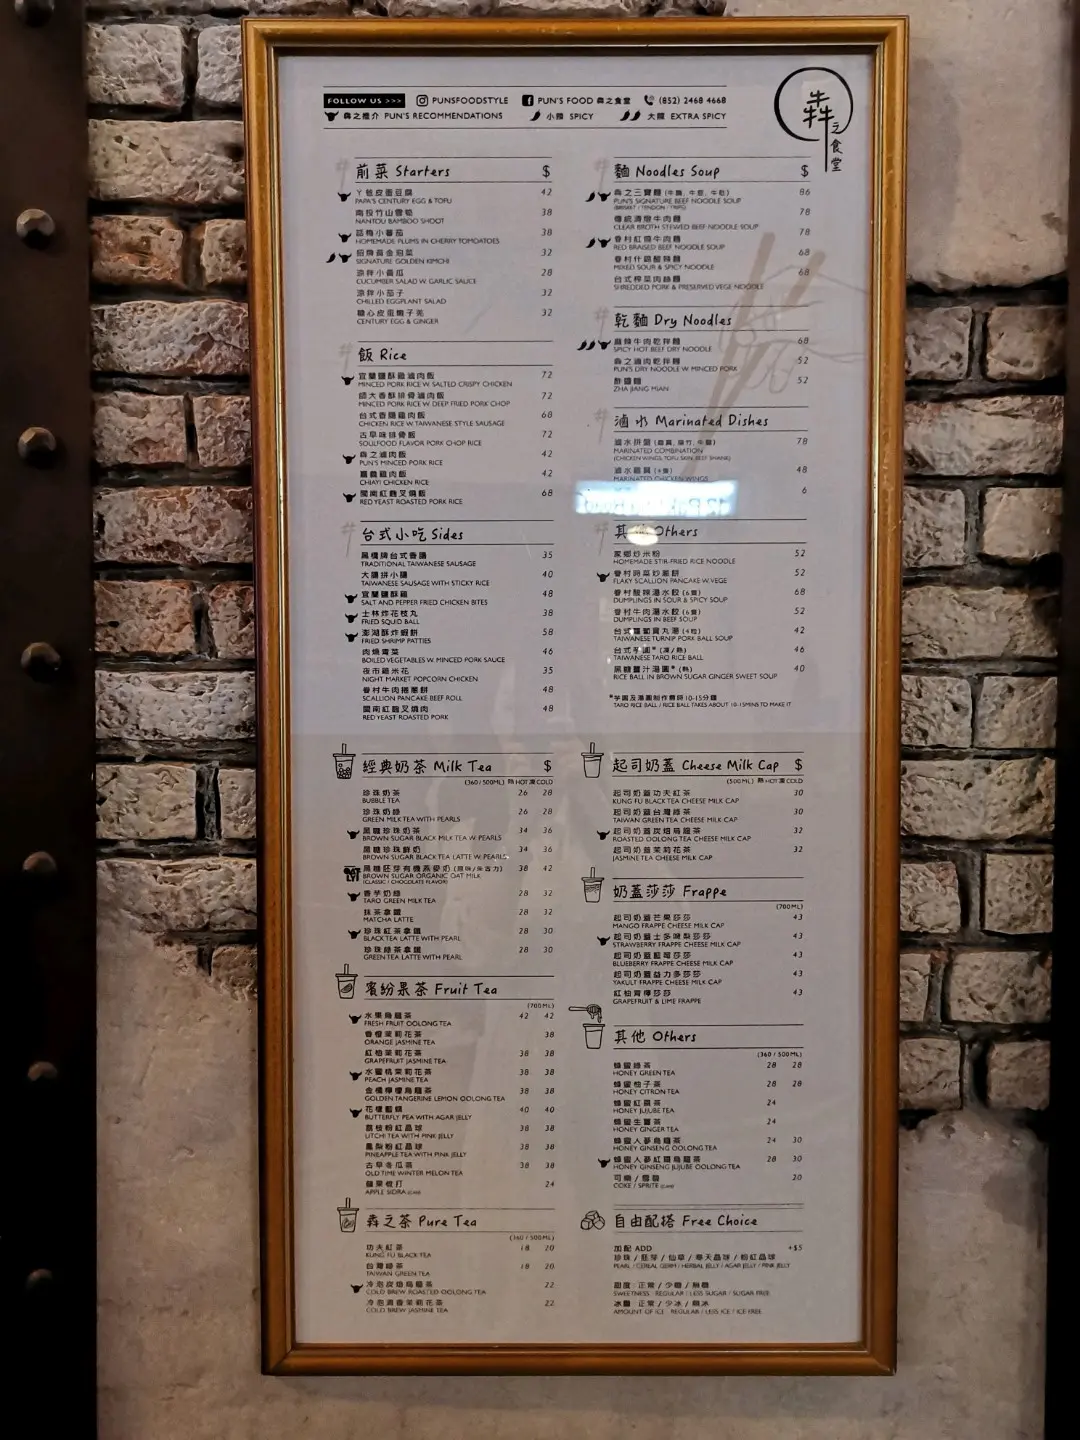 FOLLOW US >>> PUNSFOODSTYLE PUN'S FOOD 犇之食堂 (852) 2468 4668
犇之推介 PUN'S RECOMMENDATIONS 小辣 SPICY 大辣 EXTRA SPICY
犇之食堂
前菜 Starters $
丫爸皮蛋豆腐 42
PAPA'S CENTURY EGG & TOFU
南投竹山雪筍 38
NANTOU BAMBOO SHOOT
話梅小蕃茄 38
HOMEMADE PLUMS IN CHERRY TOMOATOES
招牌黃金泡菜 32
SIGNATURE GOLDEN KIMCHI
涼拌小黃瓜 28
CUCUMBER SALAD W. GARLIC SAUCE
涼拌小茄子 32
CHILLED EGGPLANT SALAD
糖心皮蛋嫩子羌 32
CENTURY EGG & GINGER
飯 Rice
宜蘭鹽酥雞滷肉飯 72
MINCED PORK RICE W. SALTED CRISPY CHICKEN
師大香酥排骨滷肉飯 72
MINCED PORK RICE W. DEEP FRIED PORK CHOP
台式香腸雞肉飯 68
CHICKEN RICE W. TAIWANESE STYLE SAUSAGE
古早味排骨飯 72
SOULFOOD FLAVOR PORK CHOP RICE
犇之滷肉飯 42
PUN'S MINCED PORK RICE
嘉義雞肉飯 42
CHIAYI CHICKEN RICE
閩南紅麴叉燒飯 68
RED YEAST ROASTED PORK RICE
台式小吃 Sides
黑橋牌台式香腸 35
TRADITIONAL TAIWANESE SAUSAGE
大腸拼小腸 40
TAIWANESE SAUSAGE WITH STICKY RICE
宜蘭鹽酥雞 48
SALT AND PEPPER FRIED CHICKEN BITES
士林炸花枝丸 38
FRIED SQUID BALL
澎湖酥炸蝦餅 58
FRIED SHRIMP PATTIES
肉燥青菜 46
BOILED VEGETABLES W. MINCED PORK SAUCE
夜市雞米花 35
NIGHT MARKET POPCORN CHICKEN
眷村牛肉捲蔥餅 48
SCALLION PANCAKE BEEF ROLL
閩南紅麴叉燒肉 48
RED YEAST ROASTED PORK
麵 Noodles Soup $
犇之三寶麵 (牛腩, 牛筋, 牛肚) 86
PUN'S SIGNATURE BEEF NOODLE SOUP
(BRISKET / TENDON / TRIPE)
傳統清燉牛肉麵 78
CLEAR BROTH STEWED BEEF NOODLE SOUP
眷村紅燒牛肉麵 78
RED BRAISED BEEF NOODLE SOUP
眷村什錦酸辣麵 68
MIXED SOUR & SPICY NOODLE
台式榨菜肉絲麵 68
SHREDDED PORK & PRESERVED VEGE NOODLE
乾麵 Dry Noodles
麻辣牛肉乾拌麵 68
SPICY HOT BEEF DRY NOODLE
犇之滷肉乾拌麵 52
PUN'S DRY NOODLE W. MINCED PORK
炸醬麵 52
ZHA JIANG MIAN
滷水 Marinated Dishes
滷水拼盤 78
MARINATED COMBINATION
(CHICKEN WINGS, TOFU SKIN, BEEF SHANK)
滷水雞翼 48
MARINATED CHICKEN WINGS
6
其他 Others
家鄉炒米粉 52
HOMEMADE STIR-FRIED RICE NOODLE
眷村時菜炒蔥餅 52
FLAKY SCALLION PANCAKE W. VEGE
眷村酸辣湯水餃 (6隻) 68
DUMPLINGS IN SOUR & SPICY SOUP
眷村牛肉湯水餃 (6隻) 52
DUMPLINGS IN BEEF SOUP
台式蘿蔔貢丸湯 (4粒) 42
TAIWANESE TURNIP PORK BALL SOUP
台式芋圓* (凍/熱) 46
TAIWANESE TARO RICE BALL
黑糖薑汁湯圓* (熱) 40
RICE BALL IN BROWN SUGAR GINGER SWEET SOUP
*芋圓及湯圓制作需時10-15分鐘
TARO RICE BALL / RICE BALL TAKES ABOUT 10-15MINS TO MAKE IT
經典奶茶 Milk Tea $
(360 / 500ML) 熱 HOT 凍 COLD
珍珠奶茶 26 28
BUBBLE TEA
珍珠奶綠 26 28
GREEN MILK TEA WITH PEARLS
黑糖珍珠奶茶 34 36
BROWN SUGAR BLACK MILK TEA W. PEARLS
黑糖珍珠鮮奶 34 36
BROWN SUGAR BLACK TEA LATTE W. PEARLS
黑糖胚芽有機燕麥奶 (原味/朱古力) 38 42
BROWN SUGAR ORGANIC OAT MILK
(CLASSIC / CHOCOLATE FLAVOR)
香芋奶綠 28 32
TARO GREEN MILK TEA
抹茶拿鐵 28 32
MATCHA LATTE
珍珠紅茶拿鐵 28 30
BLACK TEA LATTE WITH PEARL
珍珠綠茶拿鐵 28 30
GREEN TEA LATTE WITH PEARL
繽紛果茶 Fruit Tea
(700ML)
水果烏龍茶 42 42
FRESH FRUIT OOLONG TEA
香橙茉莉花茶 38
ORANGE JASMINE TEA
紅柚茉莉花茶 38 38
GRAPEFRUIT JASMINE TEA
水蜜桃茉莉花茶 38 38
PEACH JASMINE TEA
金橘檸檬烏龍茶 38 38
GOLDEN TANGERINE LEMON OOLONG TEA
花樓藍蝶 40 40
BUTTERFLY PEA WITH AGAR JELLY
荔枝粉紅晶球 38 38
LITCHI TEA WITH PINK JELLY
鳳梨粉紅晶球 38 38
PINEAPPLE TEA WITH PINK JELLY
古早冬瓜茶 38 38
OLD TIME WINTER MELON TEA
蘋果梳打 24
APPLE SIDRA (CAN)
犇之茶 Pure Tea
(360 / 500ML)
功夫紅茶 18 20
KUNG FU BLACK TEA
台灣綠茶 18 20
TAIWAN GREEN TEA
冷泡炭焙烏龍茶 22
COLD BREW ROASTED OOLONG TEA
冷泡清香茉莉花茶 22
COLD BREW JASMINE TEA
起司奶蓋 Cheese Milk Cap $
(500ML) 熱 HOT 凍 COLD
起司奶蓋功夫紅茶 30
KUNG FU BLACK TEA CHEESE MILK CAP
起司奶蓋台灣綠茶 30
TAIWAN GREEN TEA CHEESE MILK CAP
起司奶蓋炭焙烏龍茶 32
ROASTED OOLONG TEA CHEESE MILK CAP
起司奶蓋茉莉花茶 32
JASMINE TEA CHEESE MILK CAP
奶蓋莎莎 Frappe
(700ML)
起司奶蓋芒果莎莎 43
MANGO FRAPPE CHEESE MILK CAP
起司奶蓋士多啤梨莎莎 43
STRAWBERRY FRAPPE CHEESE MILK CAP
起司奶蓋藍莓莎莎 43
BLUEBERRY FRAPPE CHEESE MILK CAP
起司奶蓋益力多莎莎 43
YAKULT FRAPPE CHEESE MILK CAP
紅柚青檸莎莎 43
GRAPEFRUIT & LIME FRAPPE
其他 Others
(360 / 500ML)
蜂蜜綠茶 28 28
HONEY GREEN TEA
蜂蜜柚子茶 28 28
HONEY CITRON TEA
蜂蜜紅棗茶 24
HONEY JUJUBE TEA
蜂蜜生薑茶 24
HONEY GINGER TEA
蜂蜜人蔘烏龍茶 24 30
HONEY GINSENG OOLONG TEA
蜂蜜人蔘紅棗烏龍茶 28 30
HONEY GINSENG JUJUBE OOLONG TEA
可樂 / 雪碧 20
COKE / SPRITE (CAN)
自由配搭 Free Choice
加配 ADD +$5
珍珠 / 胚芽 / 仙草 / 寒天晶球 / 粉紅晶球
PEARL / CEREAL GERM / HERBAL JELLY / AGAR JELLY / PINK JELLY
甜度: 正常 / 少糖 / 無糖
SWEETNESS : REGULAR / LESS SUGAR / SUGAR FREE
冰量: 正常 / 少冰 / 無冰
AMOUNT OF ICE : REGULAR / LESS ICE / ICE FREE